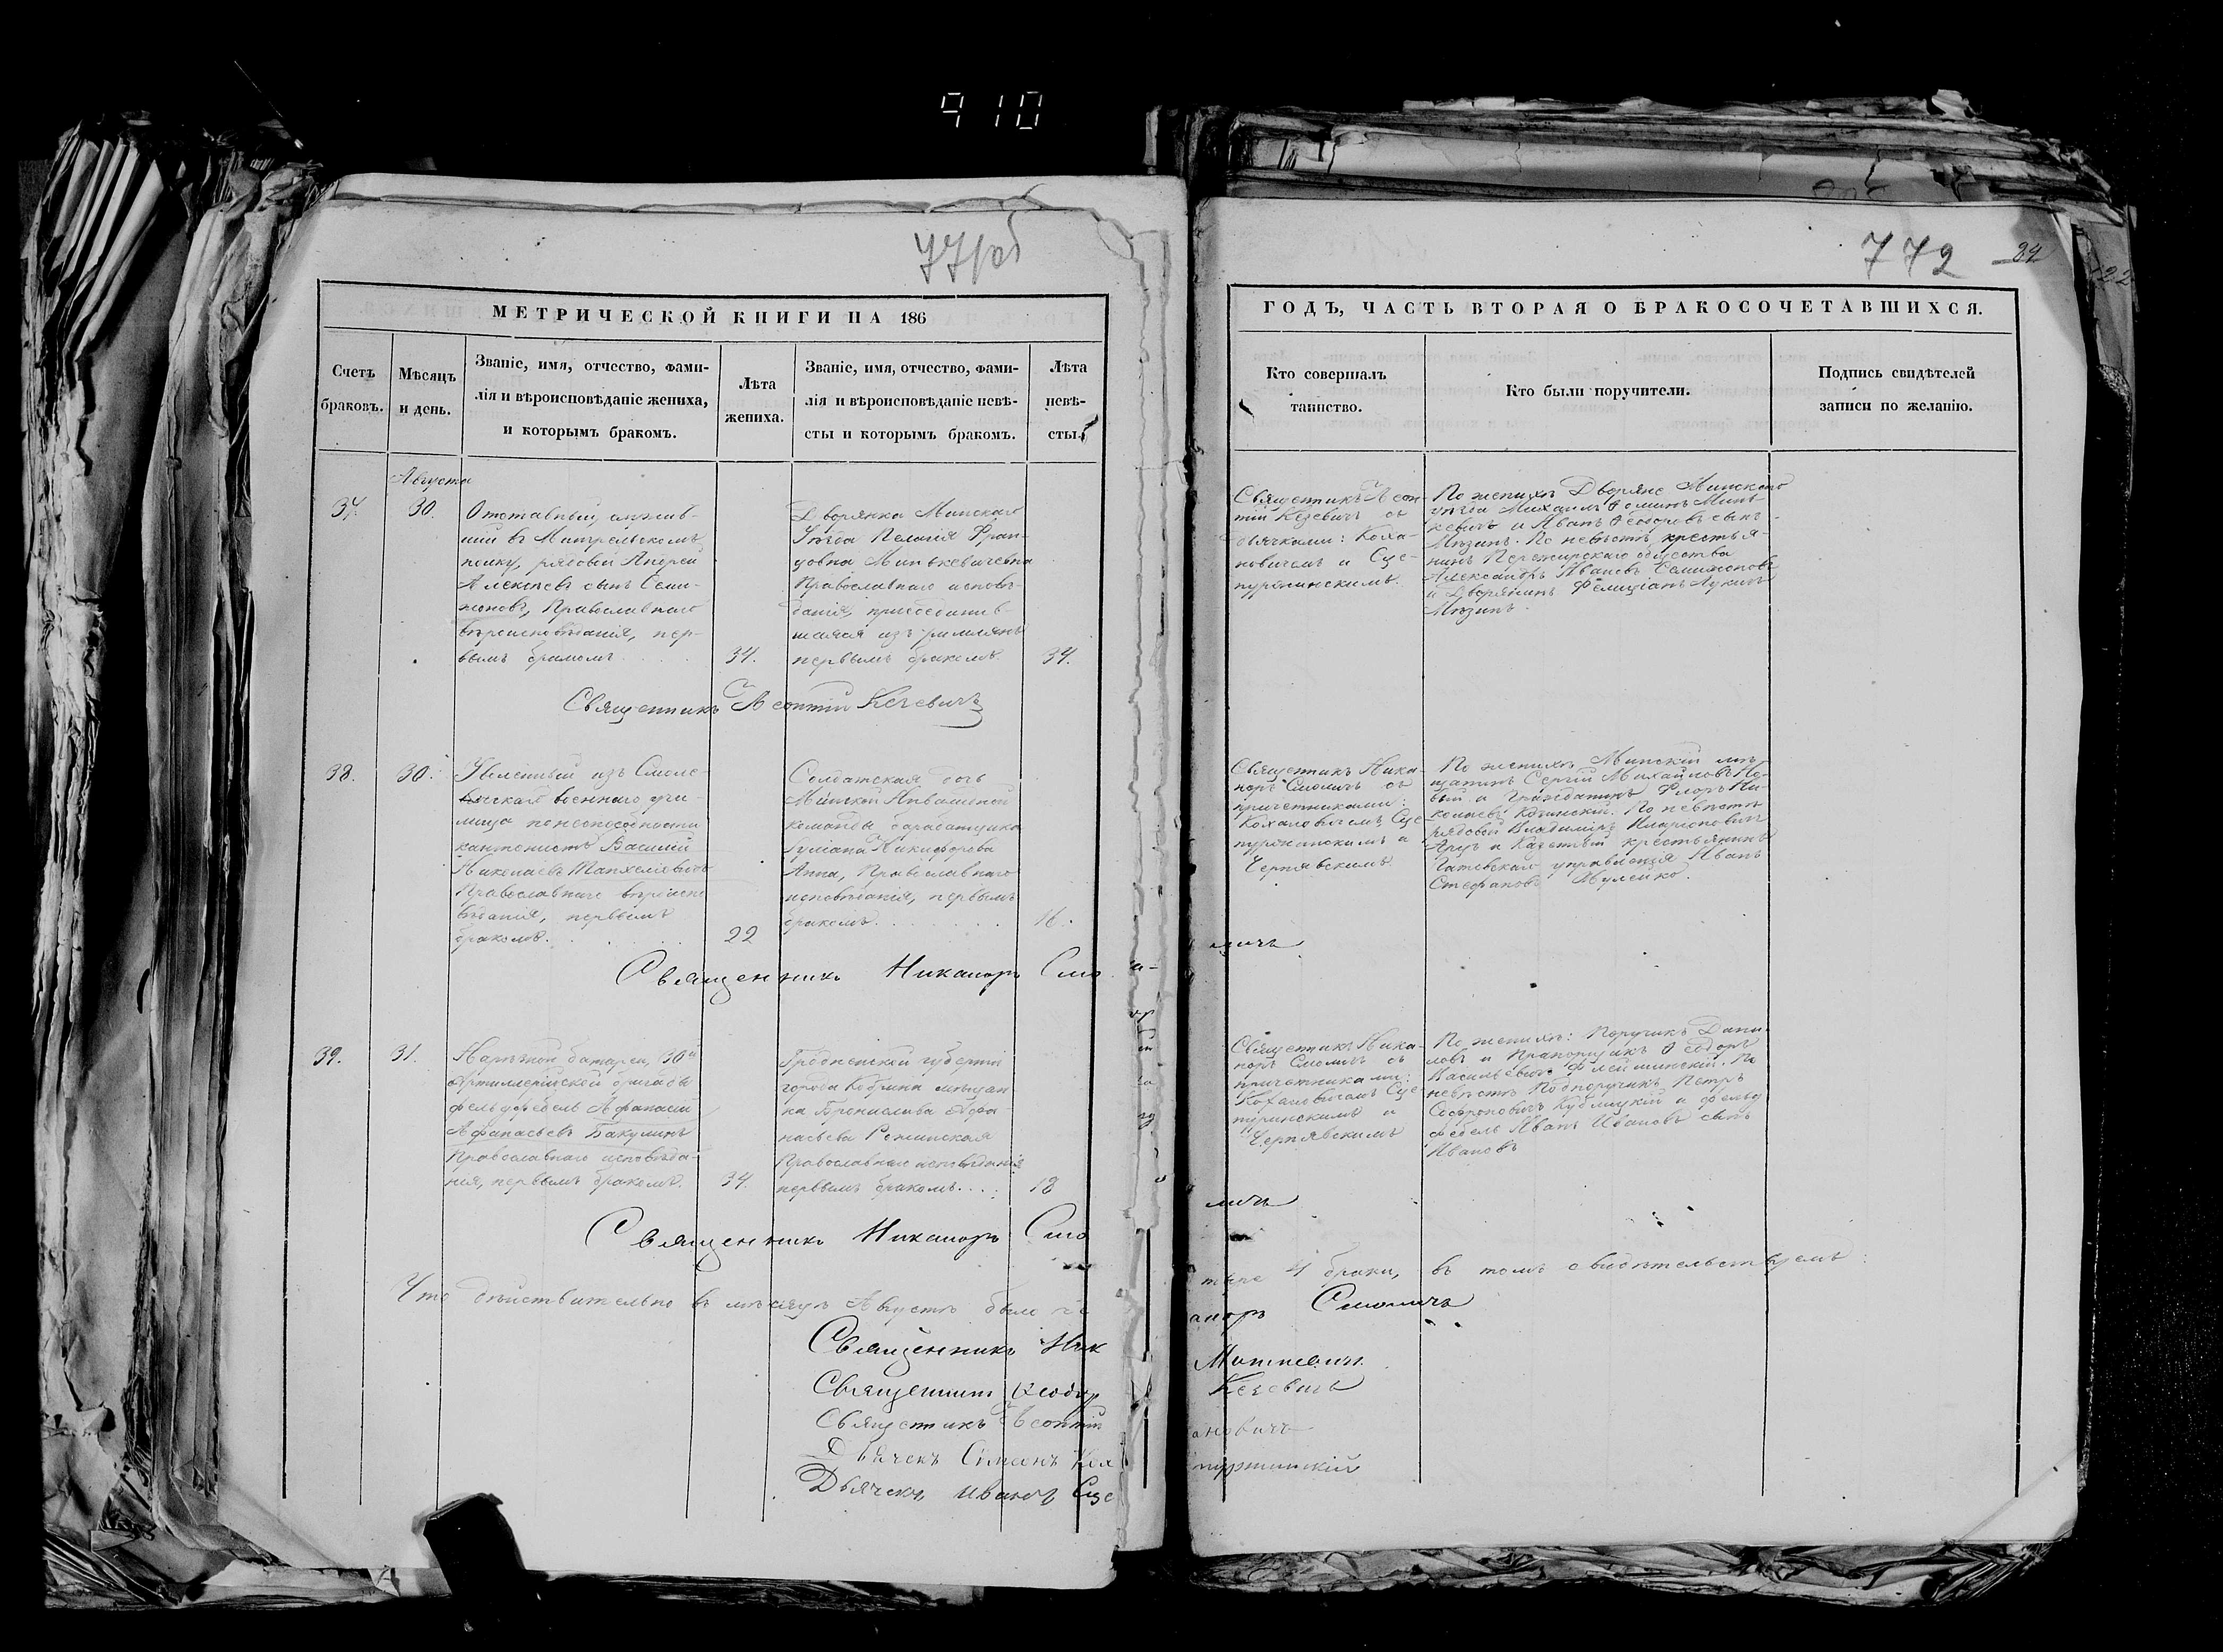 910
77/об
МЕТРИЧЕСКОЙ КНИГИ НА 186
Счетъ
браковъ.
Мѣсяцъ
и день.
Званіе, имя, отчество, фами-
лія и вѣроисповѣданіе жениха,
и которымъ бракомъ.
Лѣта
жениха.
Званіе, имя, отчество, фами-
лія и вѣроисповѣданіе невѣ-
сты и которымъ бракомъ.
Лѣта
невѣ-
сты.
Августа
37.
30.
Отставный служив-
шій въ Мингрельскомъ
полку, рядовой Андрей
Алексѣевъ сынъ Семи-
жоновъ, Православнаго
вѣроисповѣданія, пер-
вымъ бракомъ
34.
Дворянка Минскаго
Уѣзда Пелагія Фран-
цовна Минькевичевна
Православнаго исповѣ-
данія, присоединив-
шаяся изъ римлянъ
первымъ бракомъ
34.
Священникъ Леонтій Кезевичъ
38.
30.
Уволенный изъ Смоле-
нскаго военнаго учи-
лища по неспособности
кантонистъ Василій
Николаевъ
Православнаго вѣроиспо
вѣданія, первымъ
бракомъ.
22
Солдатская дочь
Минской Инвалидной
команды барабанщика
Никифорова
Анна, Православнаго
исповѣданія, первымъ
бракомъ
16.
Священникъ Никаноръ Смо
39.
31.
Нарѣзной батареи, 30й
Артиллерійской бригады
фельдфебель Афанасій
Афанасьевъ Бакулинъ
Православнаго исповѣда-
нія, первымъ бракомъ.
34.
Гродненской губерніи
города Кобрина мѣщан
ка Бронислава Афа-
насьева
Православнаго исповѣданія
первымъ бракомъ
18
Священникъ Никаноръ Смо
Что дѣйствительно въ мѣсяцѣ Августѣ было че
Священникъ Ник
Священникъ Ѳеодор
Священникъ Леонтій
Дьячекъ Симонъ Кох
Дьячекъ Иванъ Сце
772
84
ГОДЪ, ЧАСТЬ ВТОРАЯ О БРАКОСОЧЕТАВШИХСЯ.
Кто совершалъ
таинство.
Кто были поручители.
Подпись свидѣтелей
записи по желанію.
Священникъ Леон-
тій Кезевичъ съ
дьячками: Коха-
новичемъ и Сце-
пуржинскимъ.
По женихѣ Дворяне Минскаго
уѣзда Михаилъ Ѳоминъ Минь-
кевичъ и Иванъ Ѳеодоровъ сынъ
Мѣзинъ. По невѣстѣ крестья-
нинъ Пережирскаго общества
Александръ Ивановъ Семижоновъ
и Дворянинъ Фелиціанъ Лукинъ
Мѣзинъ.
Священникъ Ника-
норъ Смоличъ съ
причетниками:
Кохановичемъ, Сце-
пуржинскимъ и
Чернявскимъ.
По женихѣ Минскій мѣ-
щанинъ Сергій Михайловъ Но-
вый и Гражданинъ Флоръ Ни-
колаевъ. По невѣстѣ
рядовой Владиміръ Иларіоновичъ
и Казенный крестьянинъ
управленія Иванъ
Стефановъ Мулейко.
личъ
Священникъ Ника-
норъ Смоличъ съ
причетниками:
Кохановичемъ Сце-
пуржинскимъ и
Чернявскимъ
По женихѣ: Поручикъ Дани-
ловъ и Прапорщикъ Ѳеодоръ
Васильевичъ. По
невѣстѣ Подпоручикъ Петръ
Софроновичъ Кублицкій и фельд
фебель Иванъ Ивановъ сынъ
Ивановъ
личъ
тыре 4 брака, въ томъ свидѣтельствуемъ:
аноръ Смоличъ
Кезевичъ
ановичъ
пуржинскій